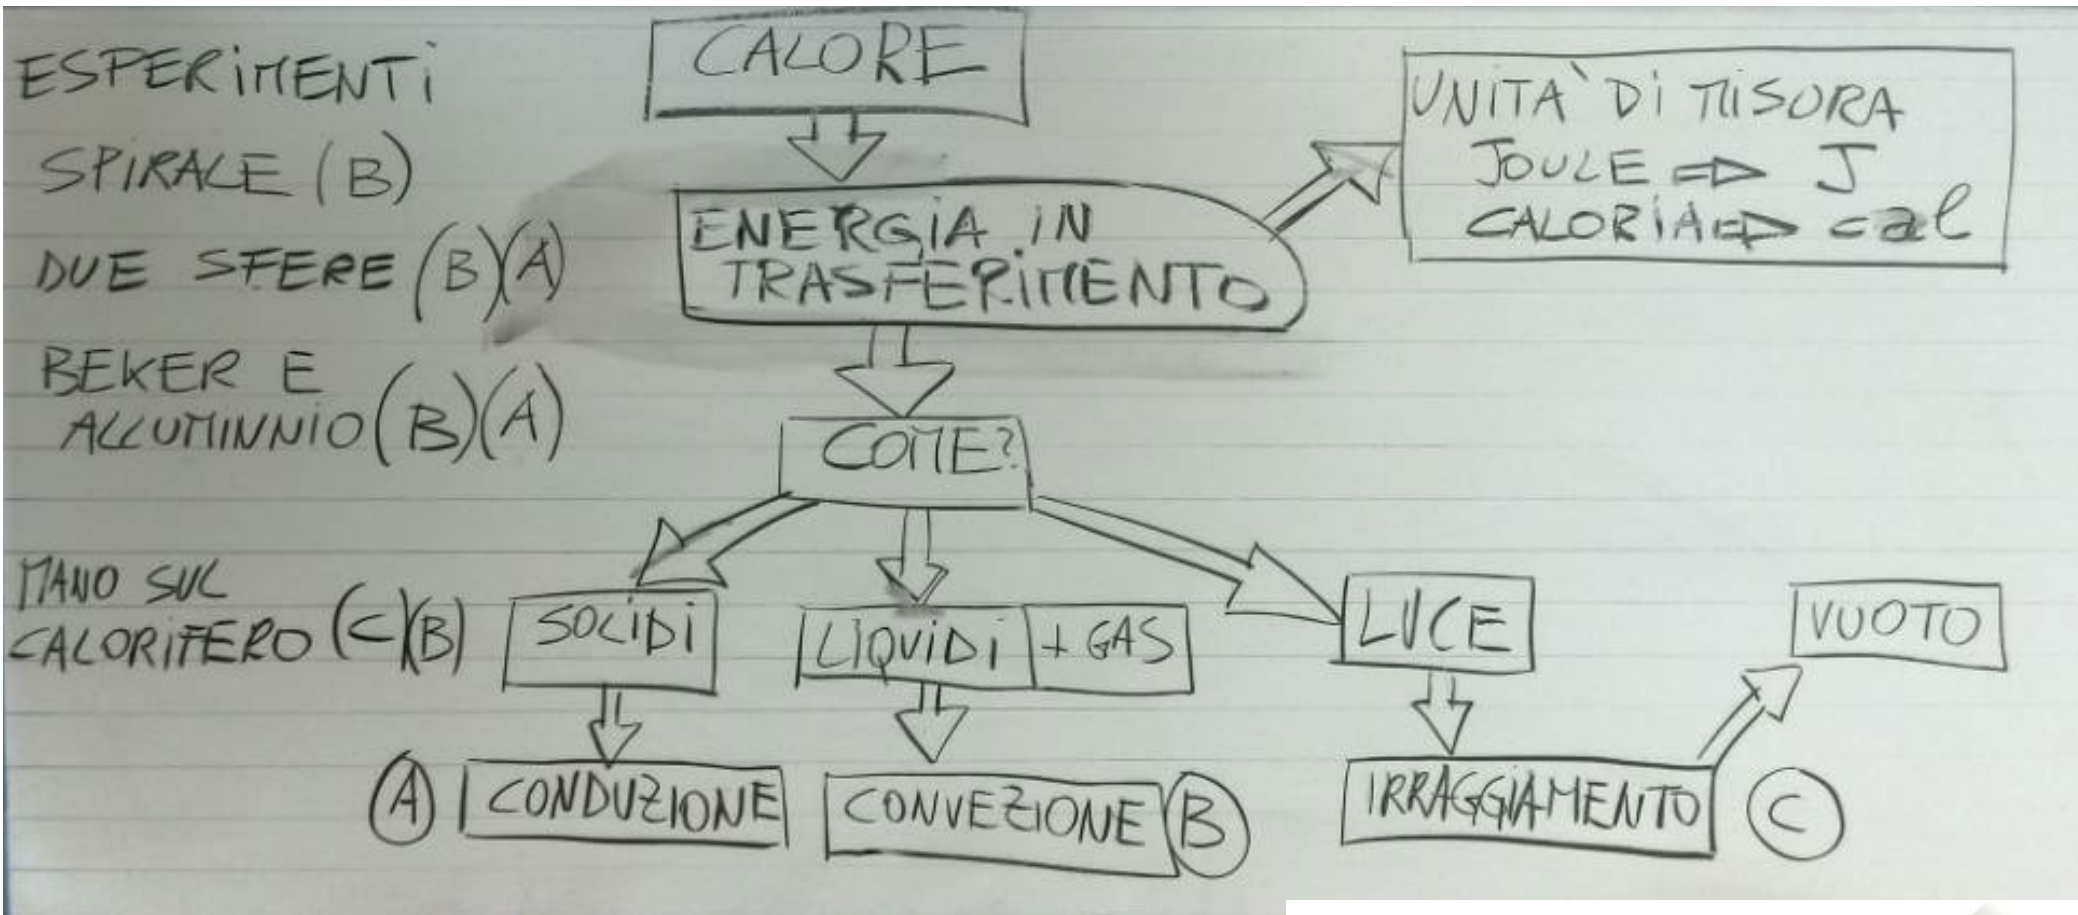 ESPERIMENTI
SPIRALE (B)
DUE SFERE (B)(A)
BEKER E
ALLUMINNIO (B)(A)
MANO SUL
CALORIFERO (C)(B)
CALORE
ENERGIA IN
TRASFERIMENTO
UNITÀ DI MISURA
JOULE ⇒ J
CALORIA ⇒ cal
COME?
SOLIDI
LIQUIDI + GAS
LUCE
VUOTO
A CONDUZIONE
CONVEZIONE B
IRRAGGIAMENTO C